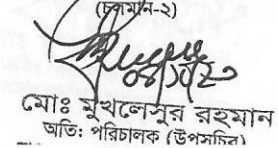 (চলমান-২)
মোঃ মুখলেসুর রহমান
অতি: পরিচালক (উপসচিব)